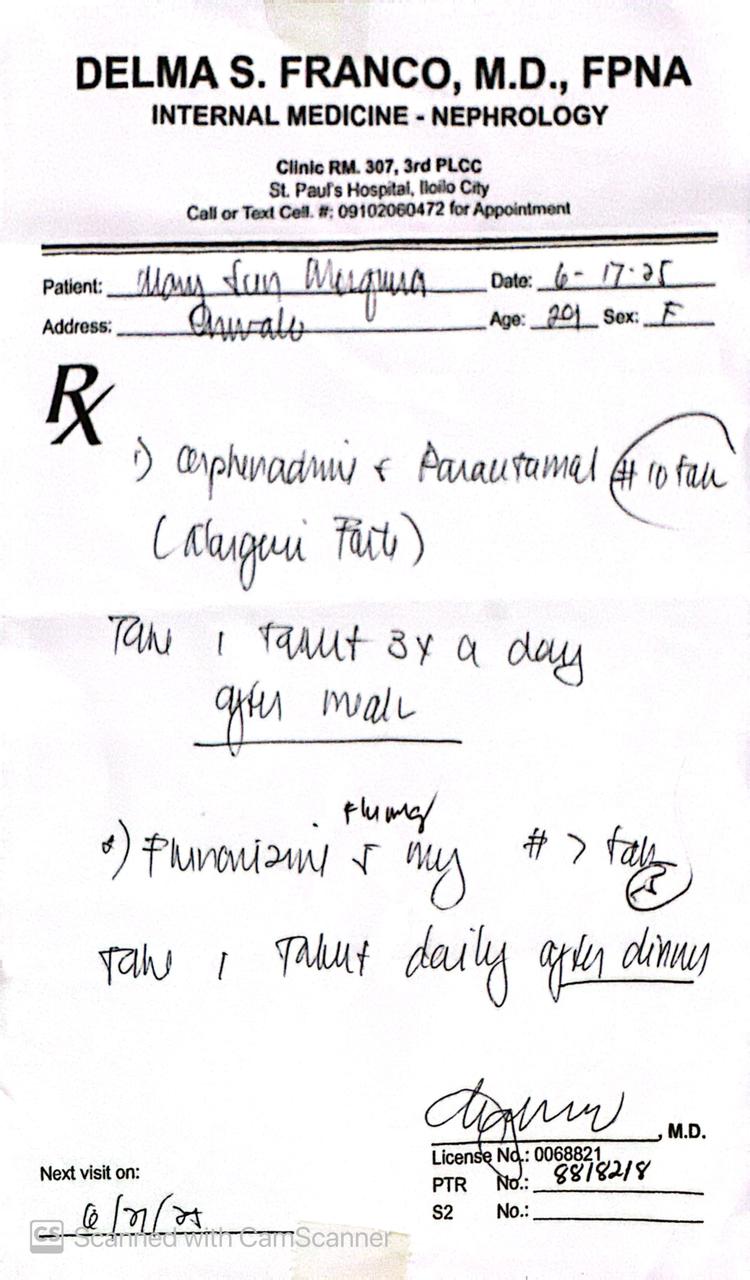 DELMA S. FRANCO, M.D., FPNA
INTERNAL MEDICINE - NEPHROLOGY
Clinic RM. 307, 3rd PLCC
St. Paul's Hospital, Iloilo City
Call or Text Cell. #: 09102060472 for Appointment
Patient: Mary Date: 6-17-25
Address: Age: Sex: F
Rx
1) Orphenadrine + Paracetamol # 10 tab
(Norgesic Forte)
Take 1 tablet 3x a day
after meals
2) Flunarizine 5 mg # 7 tab
Take 1 tablet daily after dinner
, M.D.
License No.: 0068821
PTR No.: 8818218
S2 No.:
Next visit on:
CS Scanned with CamScanner